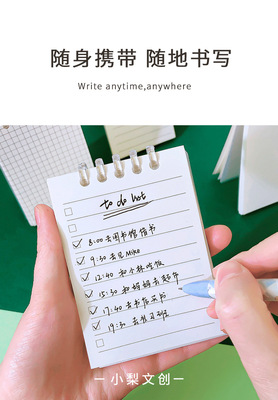 随身携带 随地书写
Write anytime,anywhere
to do list
8:00 去图书馆借书
9:30 去见Mike
12:40 和小林吃饭
15:30 和姐姐去逛街
17:40 去书店买书
19:30 去补习班
小梨文创